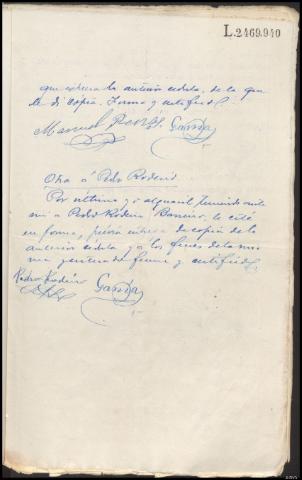 L.2469.940
que entera la anterior cedula, de la que
le di copia. Firma y certifico.
Manuel García
Otra á Pedro Rodero
Por última, yo alguacil teniendo ante
mi a Pedro Rodero, le cité
en forma, previa entrega de copia de la
anterior cedula y a los fines de la mis
ma y enterado firma y certifico.
Pedro Rodero García